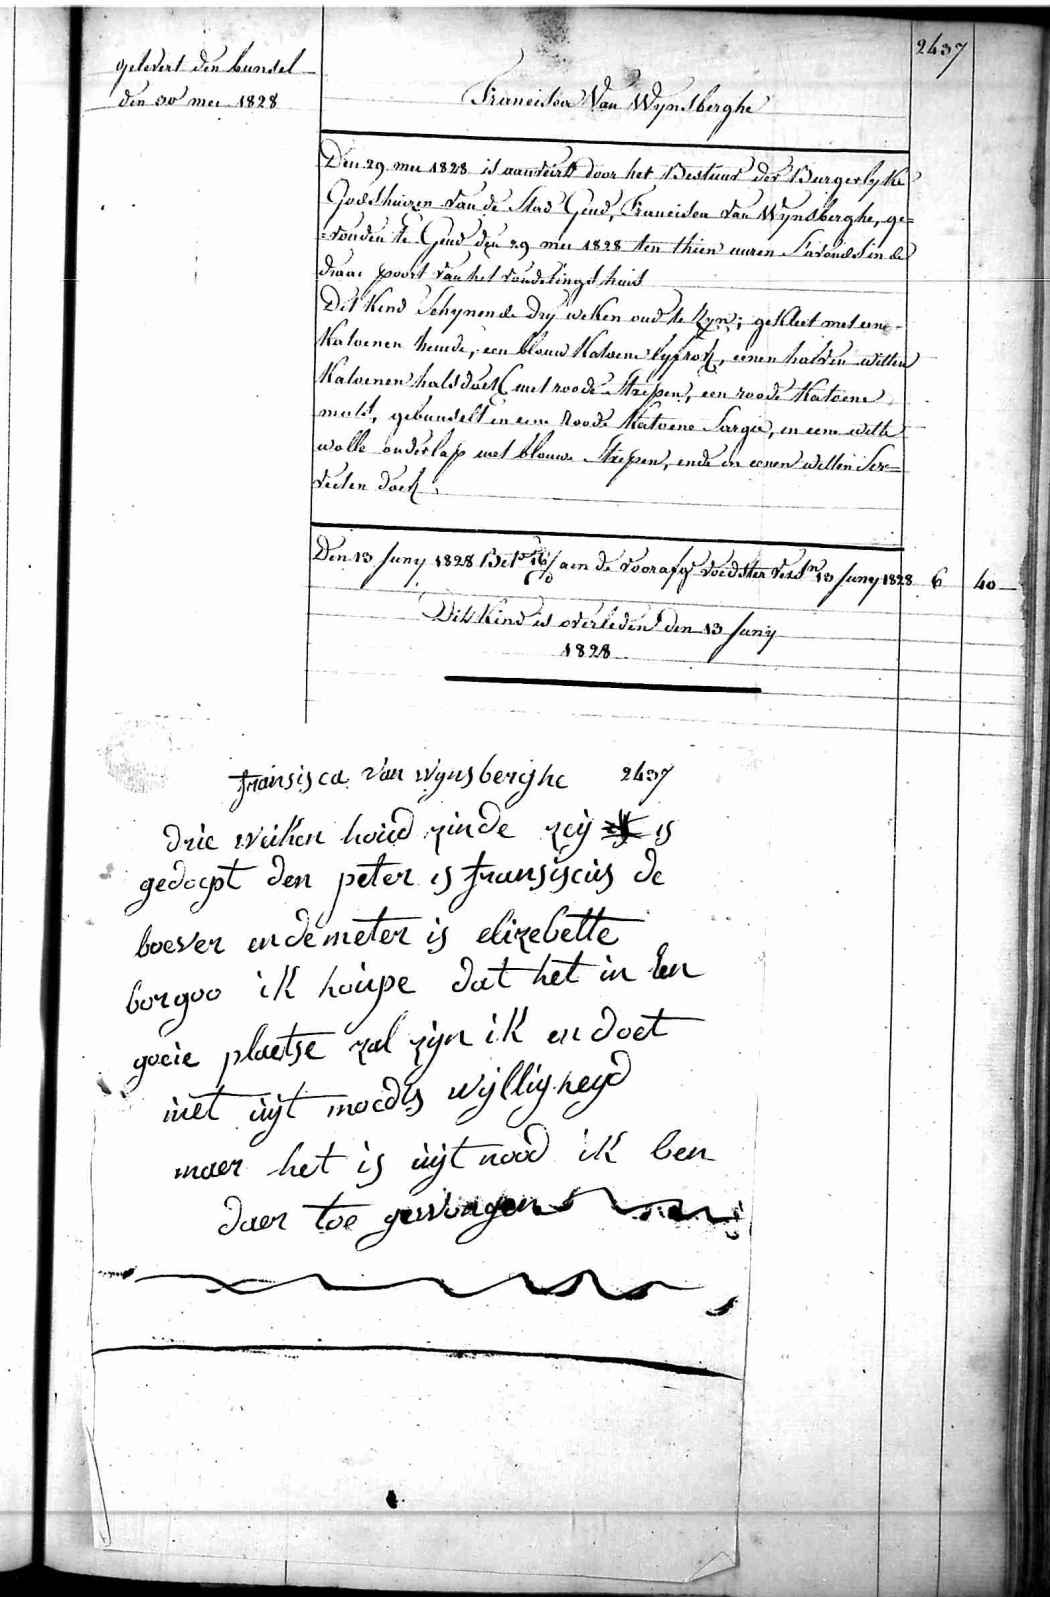 2437
gelevert den bundel
den 30 mei 1828
Francisca Van Wynsberghe
Den 29 mei 1828 is aanveird door het Bestuur der Burgerlyke
Godshuizen van de Stad Gend, Francisca van Wynsberghe, ge=
=vonden te Gend den 29 mei 1828 ten thien uuren s'avonds in de
draai poort van het vondelings huis
Dit Kind schynende dry weken oud te zyn; gekleet met eene
Katoenen hemde, een blouw Katoene lyfrok, eenen halven witten
Katoenen halsdoek met roode strepen, een roode Katoene
muts, gebundelt in eene roode Katoene sargie, en eene witte
wolle onderlap met blouwe strepen, ende in eenen witten Ser=
vieten doek.
Den 13 Juny 1828 Bet. 16/ aen de voorafg. voedster 13 Juny 1828 6 40
Dit Kind is overleden den 13 Juny
1828
fransisca van wynsberghe 2437
drie weiken houd zinde zeij is
gedoept den peter is fransiscus de
boever en de meter is elizebette
borgoo ik houpe dat het in een
goeie plaetse zal zijn ik en doet
niet uijt moedts wijlligheyd
maer het is uijt nood ik ben
daer toe gewongen